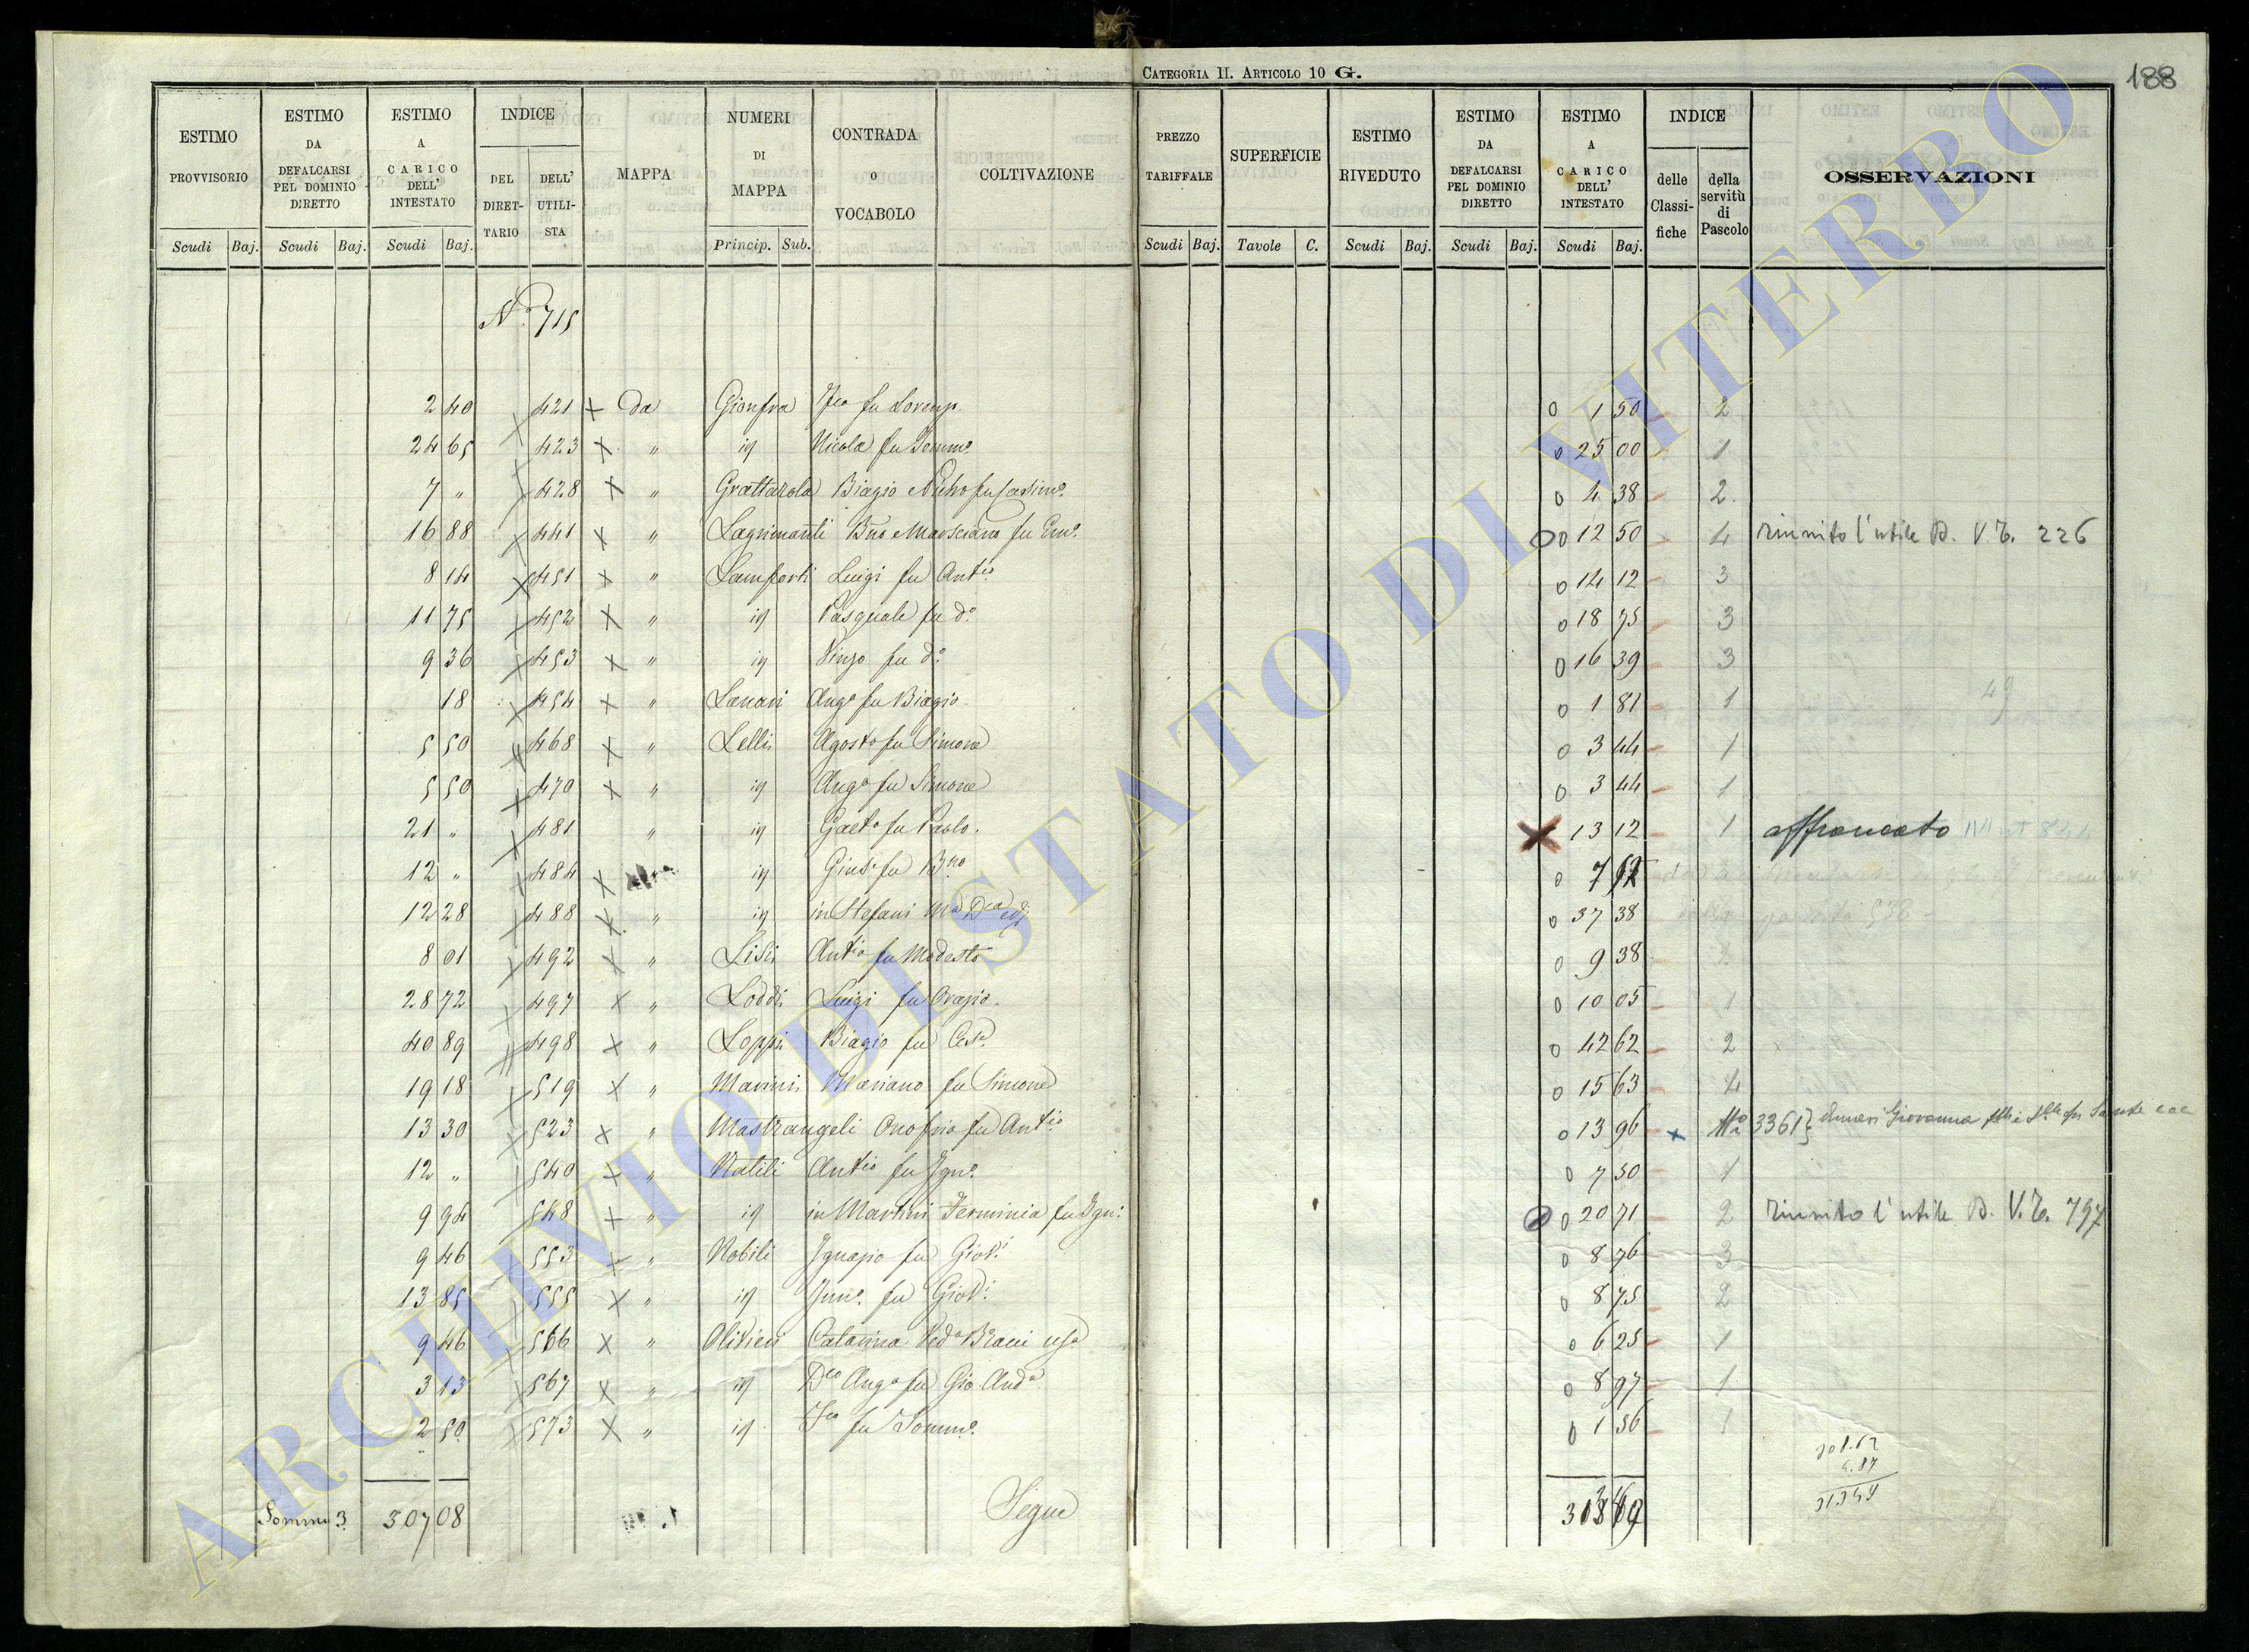 CATEGORIA II. ARTICOLO 10 G.
188
ESTIMO PROVVISORIO Scudi Baj.
ESTIMO DA DEFALCARSI PEL DOMINIO DIRETTO Scudi Baj.
ESTIMO A CARICO DELL' INTESTATO Scudi Baj.
INDICE DEL DIRETTARIO DELL' UTILISTA
MAPPA
NUMERI DI MAPPA Princip. Sub.
CONTRADA O VOCABOLO
COLTIVAZIONE
PREZZO TARIFFALE Scudi Baj.
SUPERFICIE Tavole C.
ESTIMO RIVEDUTO Scudi Baj.
ESTIMO DA DEFALCARSI PEL DOMINIO DIRETTO Scudi Baj.
ESTIMO A CARICO DELL' INTESTATO Scudi Baj.
INDICE delle Classifiche della servitù di Pascolo
OSSERVAZIONI
N.º 715
2 40 421 x Da Gionfra Fco fu Lorenzo 0 1 50 2
24 65 423 x " id Nicola fu Tomm.º 0 25 00 1
7 " 428 x " Grattarola Biagio 0 4 38 2
16 88 441 x " Lagrimanti Bno e Marsciano fu 0 12 50 4 riunito l'utile D. V. T. 226
8 14 451 x " Lanforti Luigi fu Antio 0 14 12 3
11 75 452 x " id Pasquale fu dº 0 18 75 3
9 36 453 x " id Vinzo fu dº 0 16 39 3
18 454 x " Lanari Angº fu Biagio 0 1 81 1 49
5 50 468 x " Lelli Agosto fu Simone 0 3 44 1
5 50 470 x " id Angº fu Simone 0 3 44 1
21 " 481 " id Gaetº fu Paolo. 13 12 1 affrancato
12 " 484 x id Giusº fu Bno 0 7
12 28 488 x " id in Stefani Mª Dca 0 37 38
8 01 492 x " Lisi Antº fu Modesto 0 9 38
28 72 497 x " Loddi Luigi fu Orazio. 0 10 05 1
40 89 498 x " Loppi Biagio fu Cesº 0 42 62 2
19 18 519 x " Marini Mariano fu Simone 0 15 63 4
13 30 523 x " Mastrangeli Onofrio fu Antio 0 13 96 x 3361 Giovanna
12 " 540 x " Natili Antio fu Ignº 0 7 50 1
9 94 548 x " id in Martini Erminia fu Ign: 0 20 71 2 riunito l'utile D. V. T. 797
9 46 553 x " Nobili Ignazio fu Giovi 0 8 76 3
13 85 555 x " id fu Giovi 0 8 75 2
9 46 566 x " Olivieri Catarina Vedª Bracci 0 6 25 1
3 13 567 x " id Dco Angº fu Gio Andª 0 8 97 1
2 50 573 x " id Fco fu Tommº 0 1 56 1
308.62
4.87
313 49
Somma 307 08 Segue
ARCHIVIO DI STATO DI VITERBO